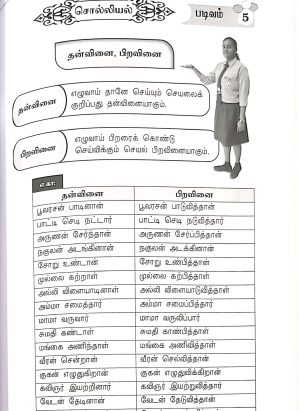 சொல்லியல்
படிவம் 5
தன்வினை, பிறவினை
தன்வினை
எழுவாய் தானே செய்யும் செயலைக்
குறிப்பது தன்வினையாகும்.
பிறவினை
எழுவாய் பிறரைக் கொண்டு
செய்விக்கும் செயல் பிறவினையாகும்.
எ.கா:
தன்வினை பிறவினை
பூவரசன் பாடினான் பூவரசன் பாடுவித்தான்
பாட்டி செடி நட்டார் பாட்டி செடி நடுவித்தார்
அருணன் சேர்ந்தான் அருணன் சேர்ப்பித்தான்
நகுலன் அடங்கினான் நகுலன் அடக்கினான்
சோறு உண்டான் சோறு உண்பித்தான்
முல்லை கற்றாள் முல்லை கற்பித்தாள்
அல்லி விளையாடினாள் அல்லி விளையாடுவித்தாள்
அம்மா சமைத்தார் அம்மா சமைப்பித்தார்
மாமா வருவார் மாமா வருவிப்பார்
சுமதி கண்டாள் சுமதி காண்பித்தாள்
மங்கை அணிந்தாள் மங்கை அணிவித்தாள்
வீரன் சென்றான் வீரன் செல்வித்தான்
குகன் எழுதுகிறான் குகன் எழுதுவிக்கிறான்
கவிஞர் இயற்றினார் கவிஞர் இயற்றுவித்தார்
வேடன் தேடினான் வேடன் தேடுவித்தான்